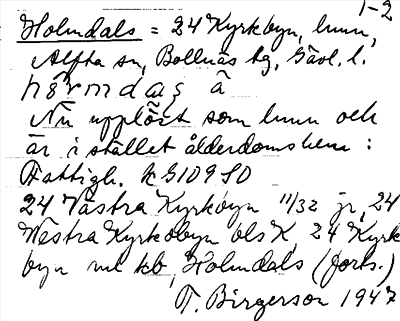 1-2
Holmdals = 24 Kyrkbyn, hmn,
Alfta sn, Bollnäs tg, Gävl. l.
hǒrmdaș â
Nu upplöst som hmn och
är i stället ålderdomshem :
Fattigh. k G109 SO
24 Västra Kyrkbyn 11/32 jr, 24
Västra Kyrkobyn obs K, 24 Kyrk
byn ml kb, Holmdals (forts.)
T. Birgerson 1947